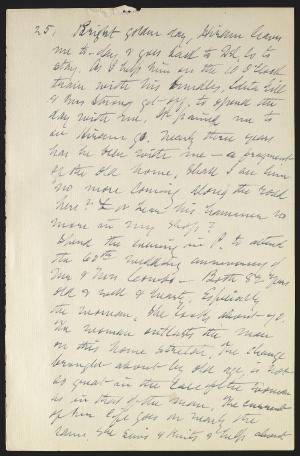 25, Bright golden day, Hiram leaves
me to-day, & goes back to Del, Co to
stay. As I help him on the 10 o'clock
train with his bundles,
& Mrs Strong get off, to spend the
day with me. It pained me to
see Hiram go. Nearly three years
has he been with me — a fragment
of the old home. Shall I see him
no more coming along the road
here? & or hear his hammer no
more in my shop?
Spend the evening in P. to attend
the 60th wedding anniversary of
Mr & Mrs Combs — Both 82 years
old & well & hearty, especially
the woman. She looks about 70.
The woman outlasts the man
on this home stretch, the change
brought about by old age, is not
so great in the case of the woman
as in that of the man. The current
of her life goes on nearly the
same, she sews & knits & helps about